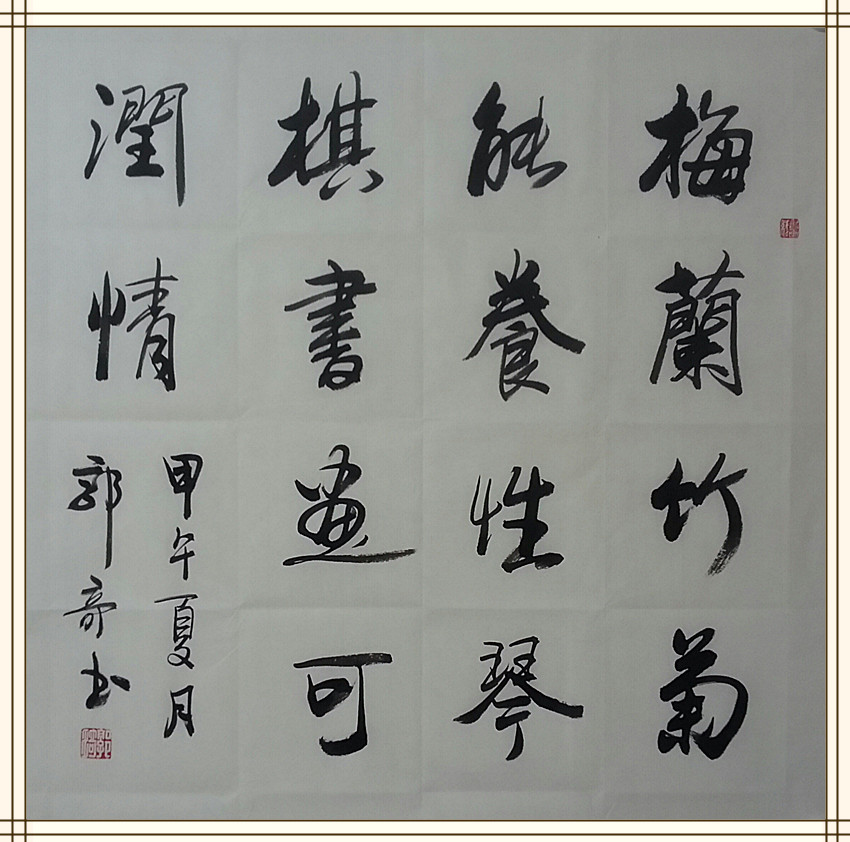 梅蘭竹菊
能養性琴
棋書畫可
潤情
甲午夏月
郭奇书